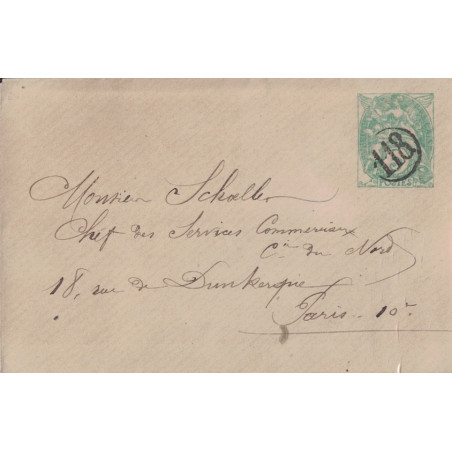 118
POSTES
Monsieur Schaller
Chef des Services Commerciaux
Cie du Nord
18, rue de Dunkerque
Paris. 10e